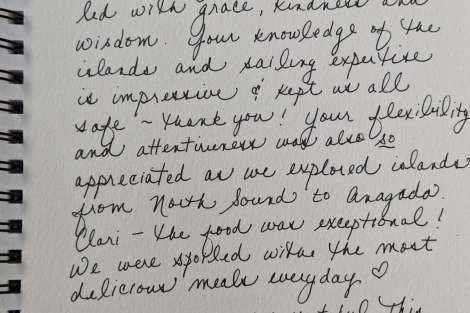 led with grace, kindness and
wisdom. Your knowledge of the
islands and sailing expertise
is impressive & kept us all
safe ~ thank you! Your flexibility
and attentiveness was also so
appreciated as we explored islands
from North Sound to Anagada.
Clari - the food was exceptional!
We were spoiled with the most
delicious meals everyday ♡
This